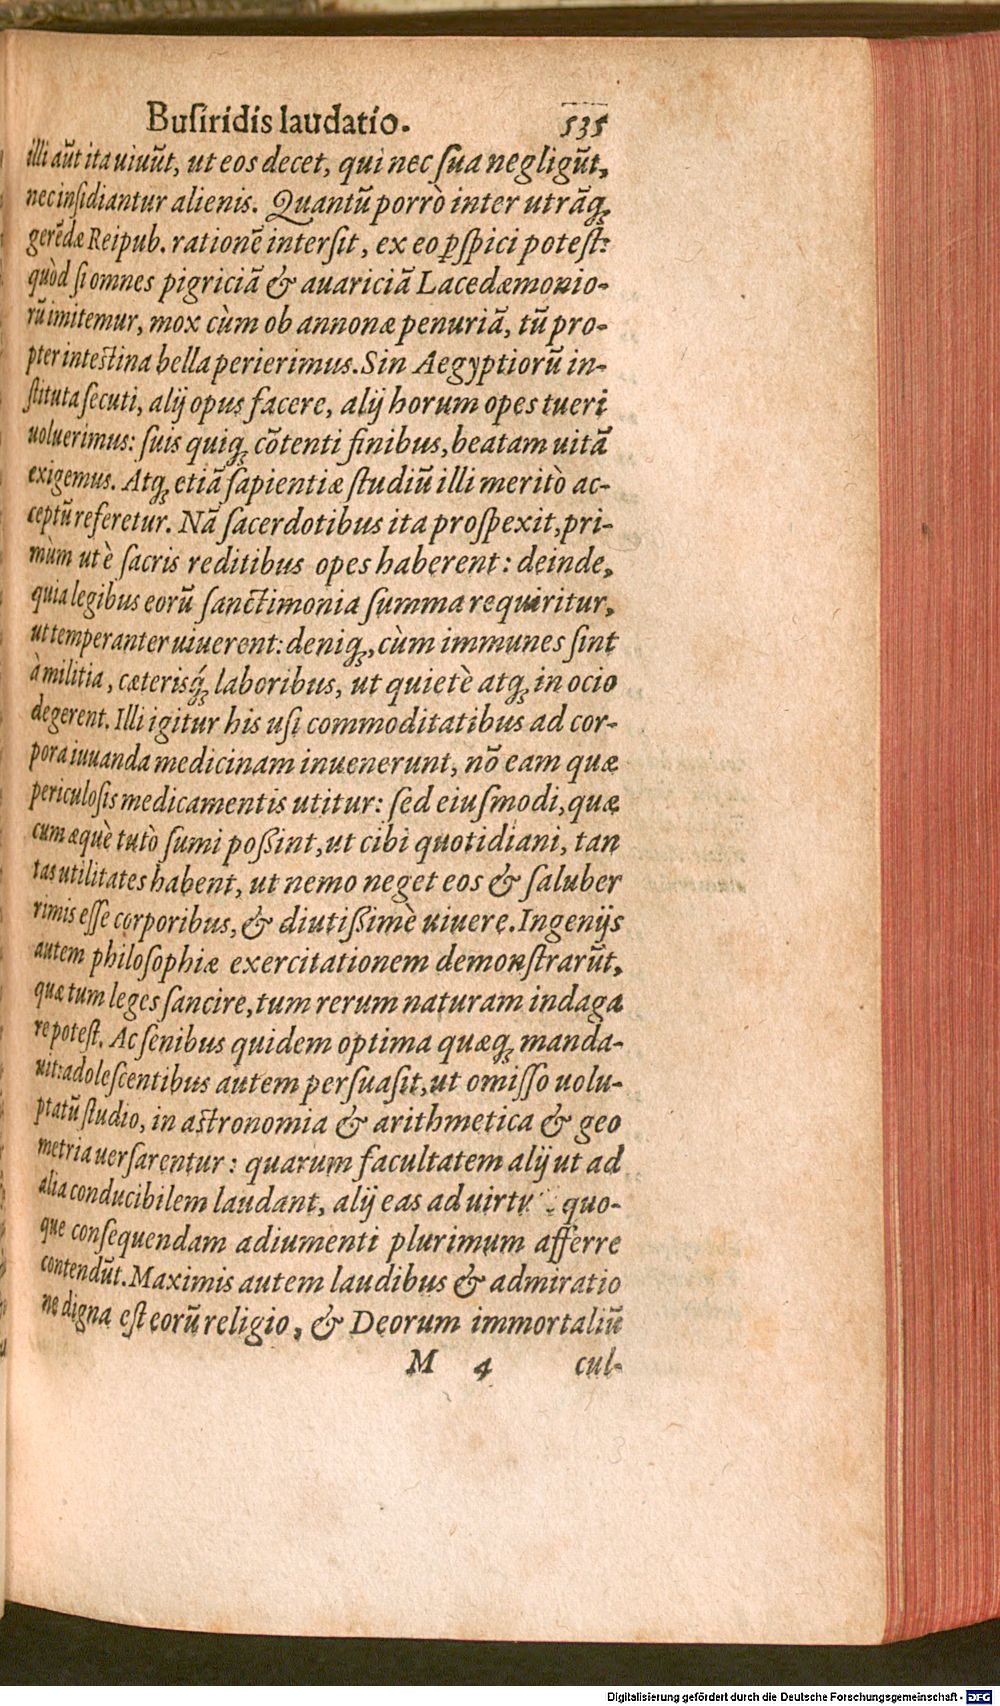 Buſiridis laudatio. 535
illi aũt ita uiuũt, ut eos decet, qui nec ſua negligũt,
nec inſidiantur alienis. Quantũ porrò inter utrãq́;
gerẽdæ Reipub. rationẽ interſit, ex eo ꝑſpici poteſt:
quòd ſi omnes pigriciã & auariciã Lacedæmonio-
rũ imitemur, mox cùm ob annonæ penuriã, tũ pro-
pter inteſtina bella perierimus. Sin Aegyptiorũ in-
ſtituta ſecuti, alij opus facere, alij horum opes tueri
uoluerimus: ſuis quiq; cõtenti finibus, beatam uitã
exigemus. Atq; etiã ſapientiæ ſtudiũ illi meritò ac-
ceptũ referetur. Nã ſacerdotibus ita proſpexit, pri-
mùm ut è ſacris reditibus opes haberent: deinde,
quia legibus eorũ ſanctimonia ſumma requiritur,
ut temperanter uiuerent: deniq;, cùm immunes ſint
à militia, cæterisq́; laboribus, ut quietè atq; in ocio
degerent. Illi igitur his uſi commoditatibus ad cor-
pora iuuanda medicinam inuenerunt, nõ eam quæ
periculoſis medicamentis utitur: ſed eiuſmodi, quæ
cum æquè tutò ſumi poßint, ut cibi quotidiani, tan
tas utilitates habent, ut nemo neget eos & ſaluber
rimis eſſe corporibus, & diutißimè uiuere. Ingenijs
autem philoſophiæ exercitationem demonſtrarũt,
quæ tum leges ſancire, tum rerum naturam indaga
re poteſt. Ac ſenibus quidem optima quæq; manda-
uit: adoleſcentibus autem perſuaſit, ut omiſſo uolu-
ptatũ ſtudio, in aſtronomia & arithmetica & geo
metria uerſarentur: quarum facultatem alij ut ad
alia conducibilem laudant, alij eas ad quo-
que conſequendam adiumenti plurimum afferre
contendũt. Maximis autem laudibus & admiratio
ne digna eſt eorũ religio, & Deorum immortaliũ
M 4 cul-
Digitalisierung gefördert durch die Deutsche Forschungsgemeinschaft - DFG